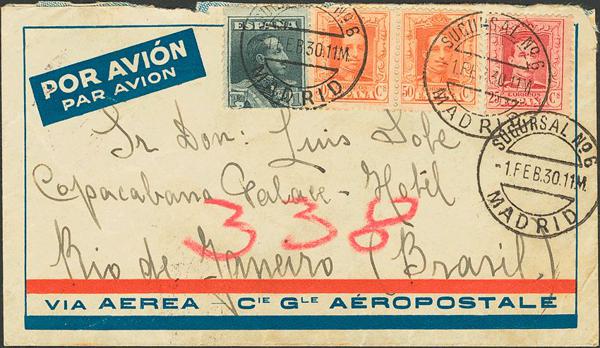 POR AVIÓN
PAR AVION
ESPAÑA
50 ESPAÑA Cs
CORREOS
25 ESPAÑA Cs
SUCURSAL Nº 6
1.FEB.30.11M.
MADRID
SUCURSAL Nº 6
1.FEB.30.11M.
MADRID
SUCURSAL Nº 6
-1.FEB.30.11M.
MADRID
Sr Don: Luis
Copacabana Palace-Hotel
338
Rio de Janeiro (Brasil)
VIA AEREA — CIE GLE AÉROPOSTALE